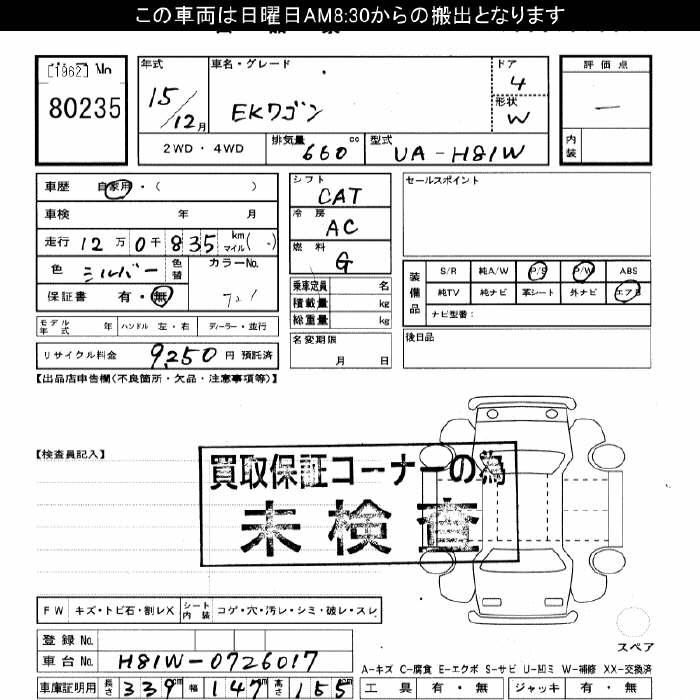 この車両は日曜日AM8:30からの搬出となります
[1962] No
80235
年式
15/12月
車名・グレード
EKワゴン
ドア
4
形状
W
評価点
―
内装
2WD・4WD
排気量
660 cc
型式
UA-H81W
車歴 自家用・( )
車検 年 月
走行 12万0千835 km マイル( )
色 シルバー 色替
カラーNo.
保証書 有・無
モデル年式 年 ハンドル 左・右 ディーラー・並行
リサイクル料金 9,250 円 預託済
シフト
CAT
冷房
AC
燃料
G
乗車定員 名
積載量 kg
総重量 kg
名変期限
月 日
セールスポイント
装備品
S/R 純A/W P/S P/W ABS
純TV 純ナビ 革シート 外ナビ エアB
ナビ型番:
後日品
【出品店申告欄(不良箇所・欠品・注意事項等)】
【検査員記入】
買取保証コーナーの為
未検査
FW キズ・トビ石・割レX シート内装 コゲ・穴・汚レ・シミ・破レ・スレ
登録No.
車台No. H81W-0726017
車庫証明用 長さ 339cm 幅 147cm 高さ 155cm
スペア
A-キズ C-腐食 E-エクボ S-サビ U-凹ミ W-補修 XX-交換済
工具 有・無 ジャッキ 有・無